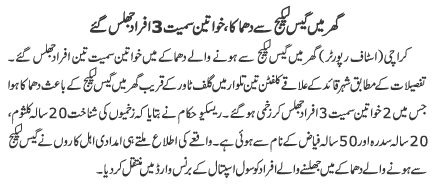 گھر میں گیس لیکیج سے دھماکا، خواتین سمیت 3 افراد جھلس گئے
کراچی (اسٹاف رپورٹر) گھر میں گیس لیکیج سے ہونے والے دھماکے میں خواتین سمیت تین افراد جھلس گئے۔
تفصیلات کے مطابق شہر قائد کے علاقے کلفٹن تین تلوار میں گلف ٹاور کے قریب گھر میں گیس لیکیج کے باعث دھماکا ہوا
جس میں 2 خواتین سمیت 3 افراد جھلس کر زخمی ہو گئے۔ ریسکیو حکام نے بتایا کہ زخمیوں کی شناخت 20 سالہ کلثوم،
20 سالہ سدرہ اور 50 سالہ فیاض کے نام سے ہوئی ہے۔ واقعے کی اطلاع ملتے ہی امدادی اہل کاروں نے گیس لیکیج
سے ہونے والے دھماکے میں جھلسنے والے افراد کو سول اسپتال کے برنس وارڈ میں منتقل کر دیا۔